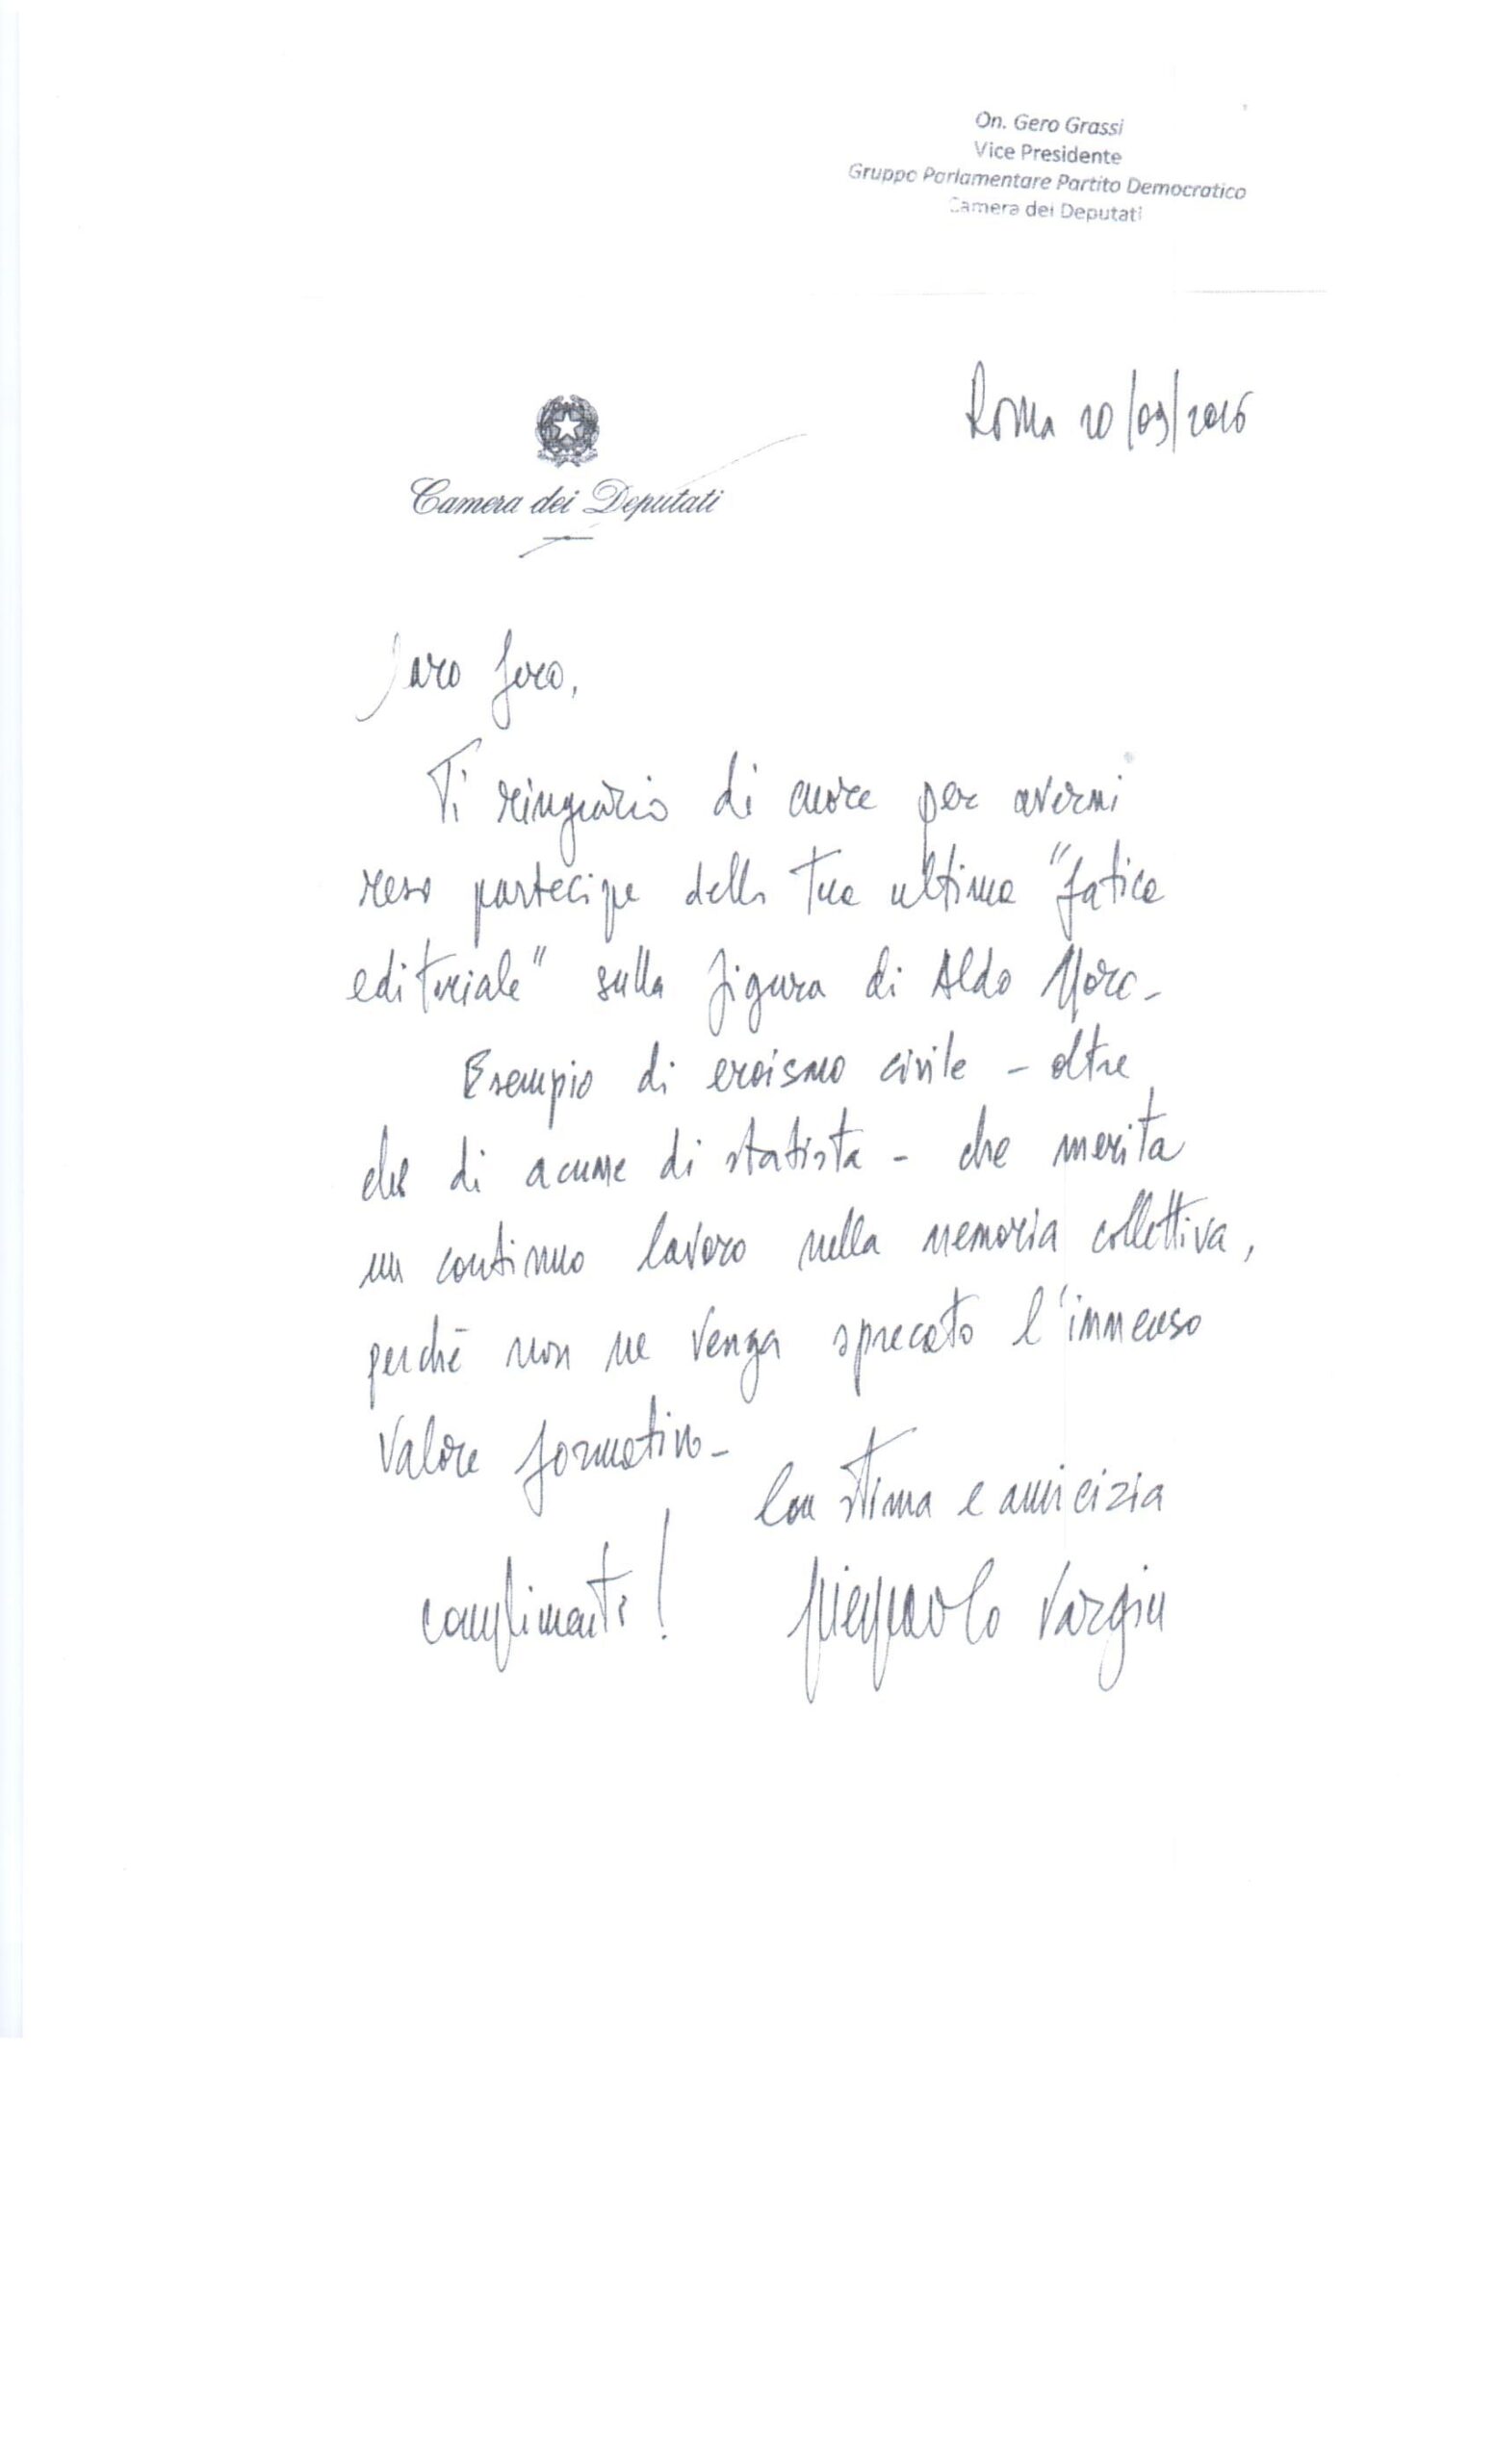 On. Gero Grassi
Vice Presidente
Gruppo Parlamentare Partito Democratico
Camera dei Deputati
Roma 20/09/2016
Camera dei Deputati
Caro Gero,
Ti ringrazio di cuore per avermi
reso partecipe della Tua ultima "fatica
editoriale" sulla figura di Aldo Moro -
Esempio di eroismo civile - oltre
che di acume di statista - che merita
un continuo lavoro nella memoria collettiva,
perché non ne venga sprecato l'immenso
valore formativo -
Con stima e amicizia
complimenti!
Pierpaolo Vargiu